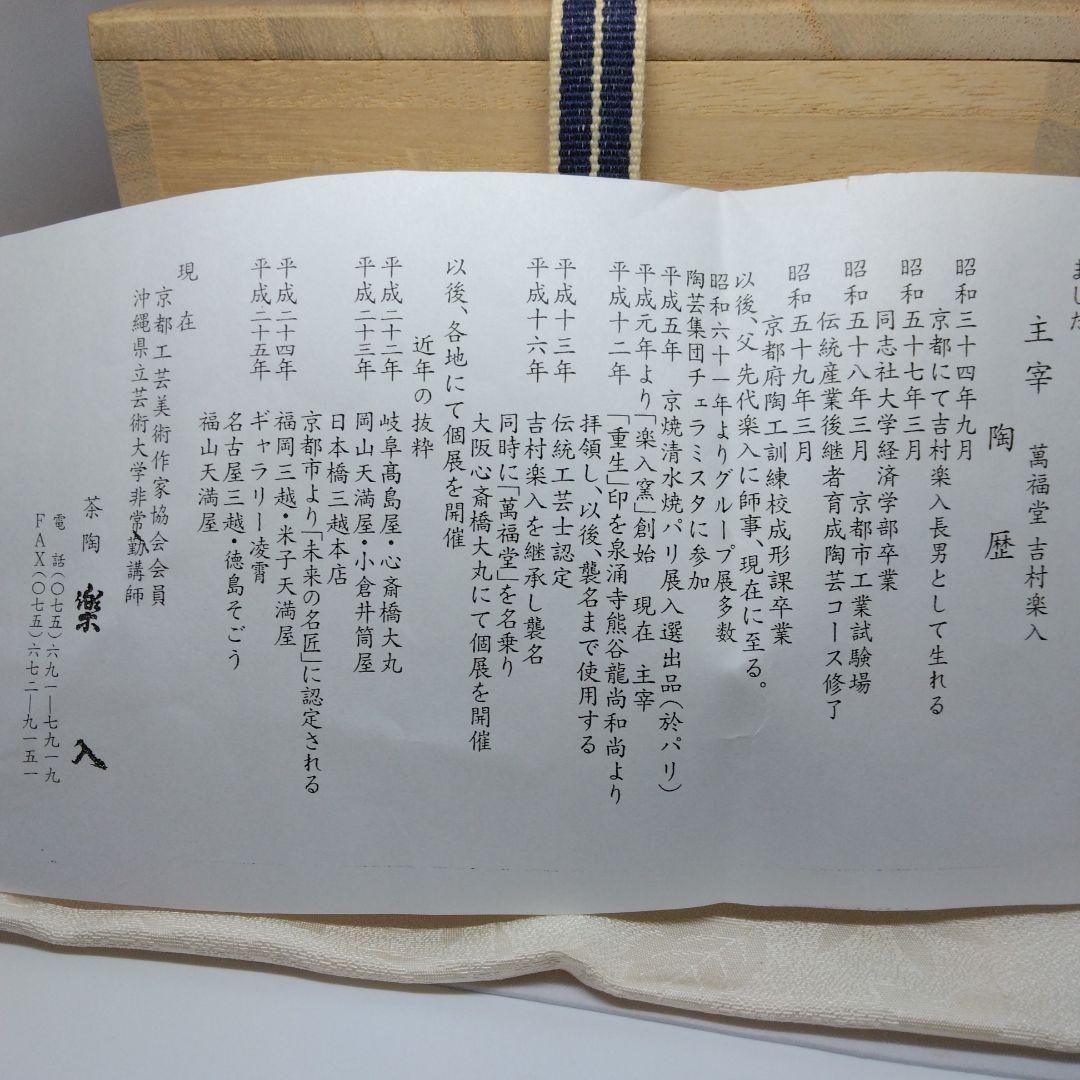 ました
主宰 萬福堂 吉村楽入
陶歴
昭和三十四年九月
京都にて吉村楽入長男として生れる
昭和五十七年三月
同志社大学経済学部卒業
昭和五十八年三月 京都市工業試験場
伝統産業後継者育成陶芸コース修了
昭和五十九年三月
京都府陶工訓練校成形課卒業
以後、父先代楽入に師事、現在に至る。
昭和六十一年よりグループ展多数
陶芸集団チェラミスタに参加
平成五年 京焼清水焼パリ展入選出品(於パリ)
平成元年より「楽入窯」創始 現在 主宰
平成十二年 「重生」印を泉涌寺熊谷龍尚和尚より
拝領し、以後、襲名まで使用する
平成十三年 伝統工芸士認定
平成十六年 吉村楽入を継承し襲名
同時に「萬福堂」を名乗り
大阪心斎橋大丸にて個展を開催
以後、各地にて個展を開催
近年の抜粋
平成二十二年 岐阜髙島屋・心斎橋大丸
平成二十三年 岡山天満屋・小倉井筒屋
日本橋三越本店
京都市より「未来の名匠」に認定される
平成二十四年 福岡三越・米子天満屋
平成二十五年 ギャラリー凌霄
名古屋三越・徳島そごう
福山天満屋
現在
京都工芸美術作家協会会員
沖縄県立芸術大学非常勤講師
茶陶 楽入
電話(〇七五)六九一―七九一九
FAX(〇七五)六七二―九一五一